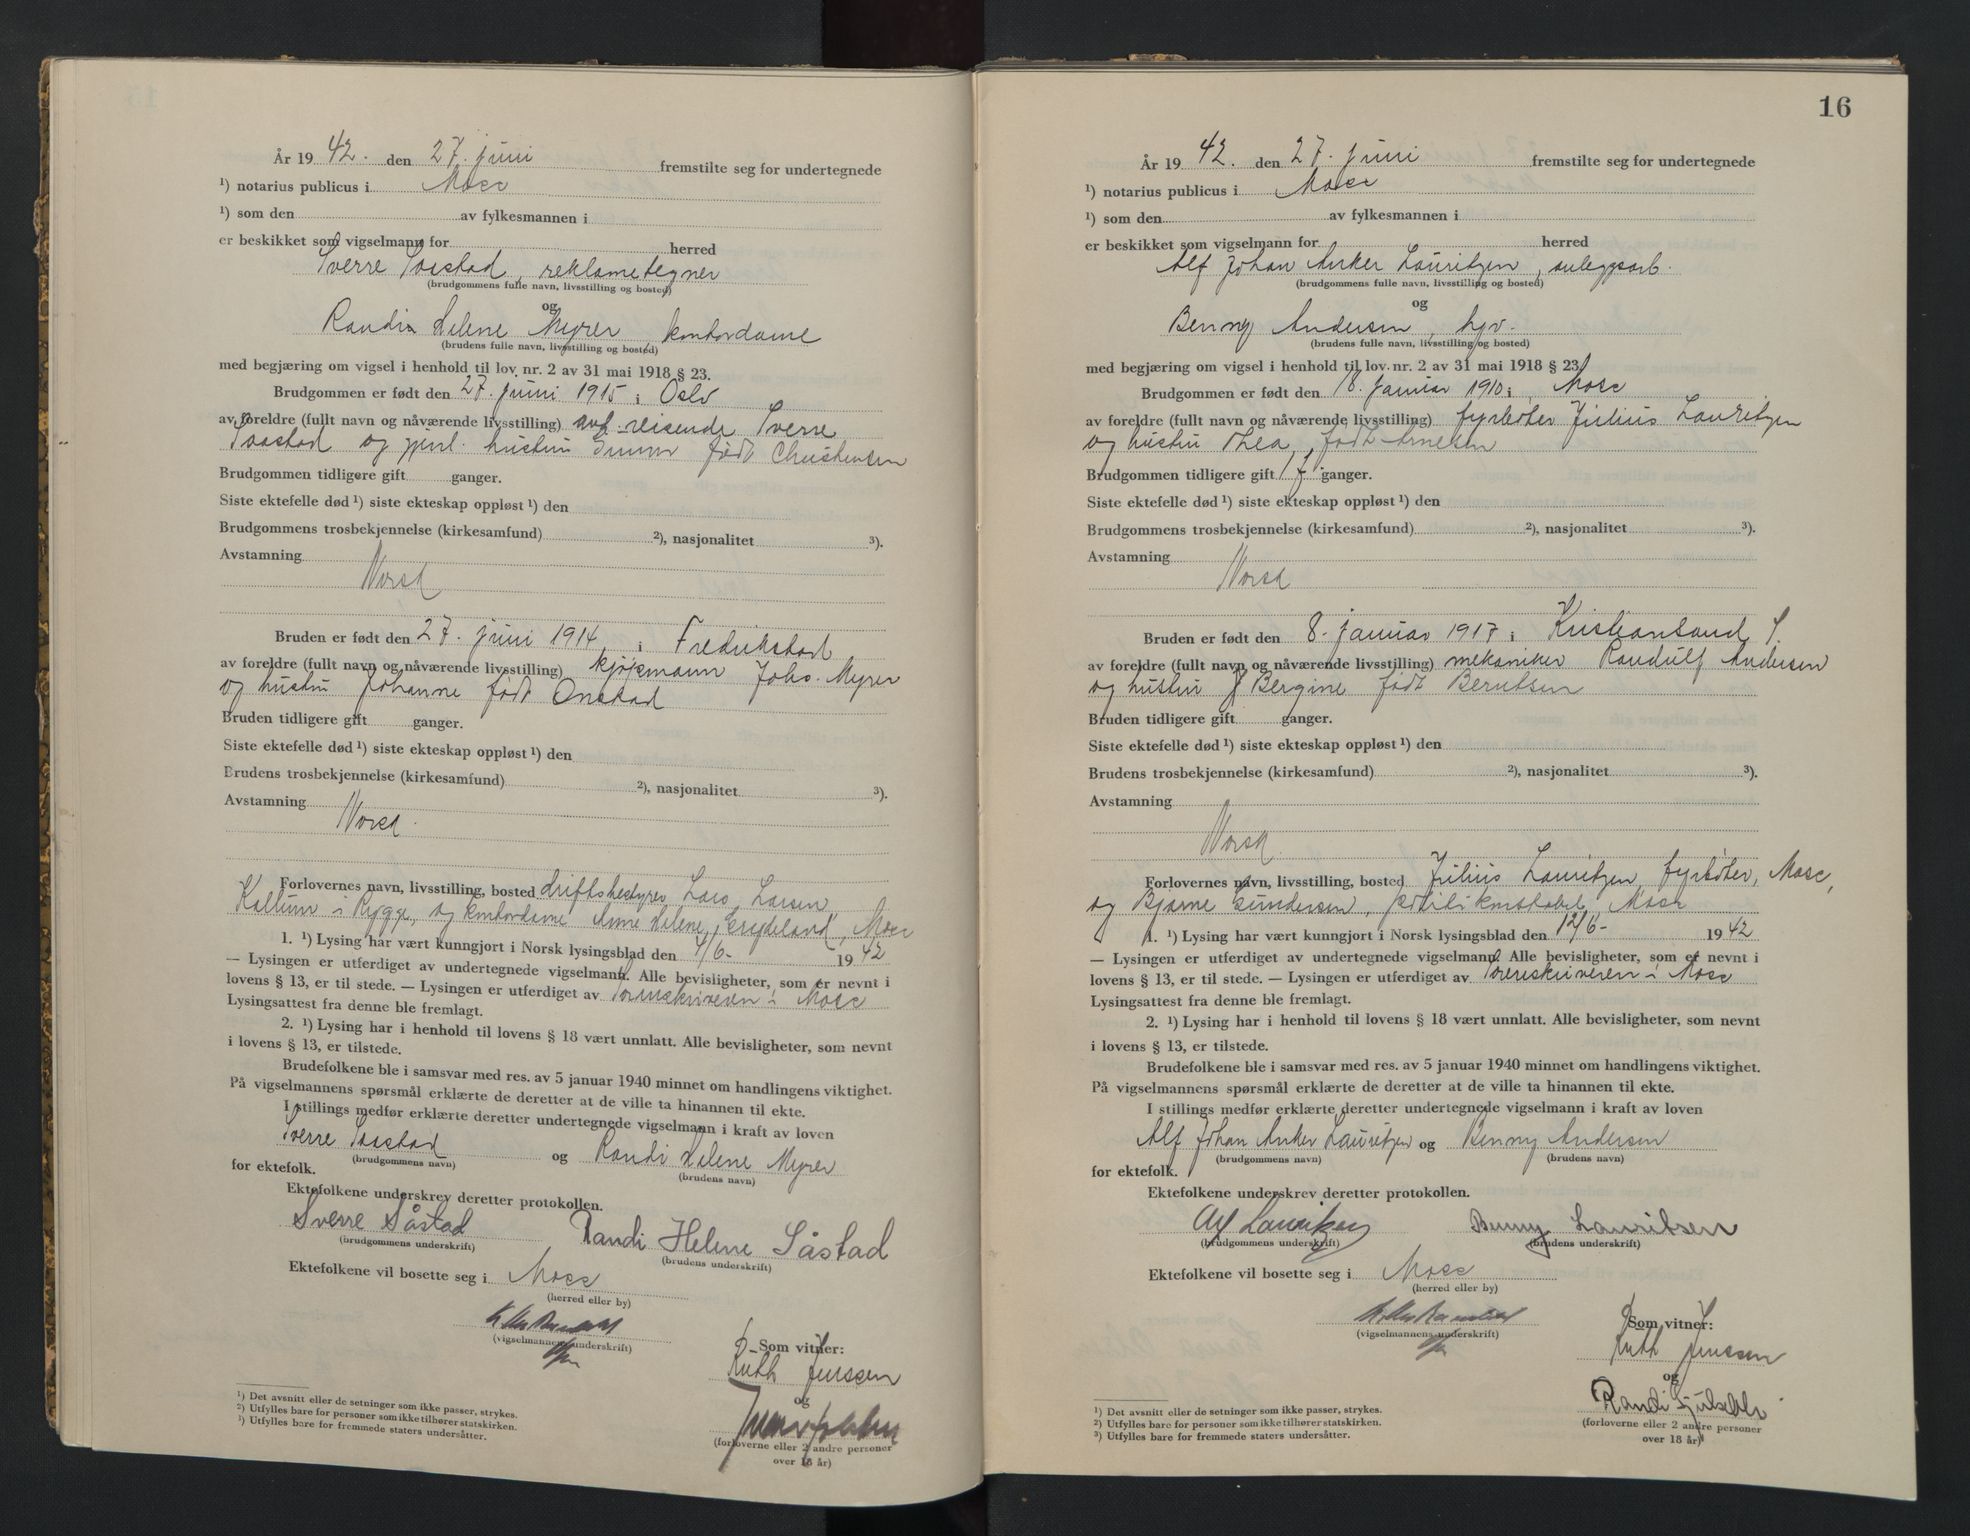 År 19 42. den 27. juni fremstilte seg for undertegnede
¹) notarius publicus i Moss
¹) som den av fylkesmannen i
er beskikket som vigselmann for herred
Sverre Saastad, reklametegner
(brudgommens fulle navn, livsstilling og bosted)
og
Randi Helene Myrer, kontordame
(brudens fulle navn, livsstilling og bosted)
med begjæring om vigsel i henhold til lov. nr. 2 av 31 mai 1918 § 23.
Brudgommen er født den 27. juni 1915 i Oslo
av foreldre (fullt navn og nåværende livsstilling) reisende Sverre
Saastad og hustru født Christensen
Brudgommen tidligere gift ganger.
Siste ektefelle død ¹) siste ekteskap oppløst ¹) den
Brudgommens trosbekjennelse (kirkesamfund) ²), nasjonalitet ³).
Avstamning
Norsk
Bruden er født den 27. juni 1914 i Fredrikstad
av foreldre (fullt navn og nåværende livsstilling) kjøpmann Johs. Myrer
og hustru Johanne født Onstad
Bruden tidligere gift ganger.
Siste ektefelle død ¹) siste ekteskap oppløst ¹) den
Brudens trosbekjennelse (kirkesamfund) ²), nasjonalitet ³).
Avstamning
Norsk.
Forlovernes navn, livsstilling, bosted driftsbestyrer Lars Larsen
i Rygge, og kontordame Anne Helene Moss
1. ¹) Lysing har vært kunngjort i Norsk lysingsblad den 4/6- 19 42
— Lysingen er utferdiget av undertegnede vigselmann. Alle bevisligheter, som er nevnt i
lovens § 13, er til stede. — Lysingen er utferdiget av Sorenskriveren i Moss
Lysingsattest fra denne ble fremlagt.
2. ¹) Lysing har i henhold til lovens § 18 vært unnlatt. Alle bevisligheter, som nevnt
i lovens § 13, er tilstede.
Brudefolkene ble i samsvar med res. av 5 januar 1940 minnet om handlingens viktighet.
På vigselmannens spørsmål erklærte de deretter at de ville ta hinannen til ekte.
I stillings medfør erklærte deretter undertegnede vigselmann i kraft av loven
Sverre Saastad og Randi Helene Myrer
(brudgommens navn) (brudens navn)
for ektefolk.
Ektefolkene underskrev deretter protokollen.
Sverre Såstad Randi Helene Såstad
(brudgommens underskrift) (brudens underskrift)
Ektefolkene vil bosette seg i Moss
(herred eller by)
(vigselmannens underskrift)
Som vitner:
Ruth Jenssen
og
(forloverne eller 2 andre personer
over 18 år)
¹) Det avsnitt eller de setninger som ikke passer, strykes.
²) Utfylles bare for personer som ikke tilhører statskirken.
³) Utfylles bare for fremmede staters undersåtter.
16
År 19 42. den 27. juni fremstilte seg for undertegnede
¹) notarius publicus i Moss
¹) som den av fylkesmannen i
er beskikket som vigselmann for herred
Alf Johan Anker Lauritzen, anleggsarb.
(brudgommens fulle navn, livsstilling og bosted)
og
Benny Andersen, hgv.
(brudens fulle navn, livsstilling og bosted)
med begjæring om vigsel i henhold til lov. nr. 2 av 31 mai 1918 § 23.
Brudgommen er født den 18. januar 1910 i Moss
av foreldre (fullt navn og nåværende livsstilling) fyrbøter Julius Lauritzen
og hustru Thea, født Arnesen
Brudgommen tidligere gift 1 ganger.
Siste ektefelle død ¹) siste ekteskap oppløst ¹) den
Brudgommens trosbekjennelse (kirkesamfund) ²), nasjonalitet ³).
Avstamning
Norsk
Bruden er født den 8. januar 1917 i Kristiansand S.
av foreldre (fullt navn og nåværende livsstilling) mekaniker Randulf Andersen
og hustru Bergine født Berntsen
Bruden tidligere gift ganger.
Siste ektefelle død ¹) siste ekteskap oppløst ¹) den
Brudens trosbekjennelse (kirkesamfund) ²), nasjonalitet ³).
Avstamning
Norsk
Forlovernes navn, livsstilling, bosted Julius Lauritzen, fyrbøter, Moss,
og Bjarne Gundersen, politikonstabel, Moss
1. ¹) Lysing har vært kunngjort i Norsk lysingsblad den 12/6- 19 42
— Lysingen er utferdiget av undertegnede vigselmann. Alle bevisligheter, som er nevnt i
lovens § 13, er til stede. — Lysingen er utferdiget av Sorenskriveren i Moss
Lysingsattest fra denne ble fremlagt.
2. ¹) Lysing har i henhold til lovens § 18 vært unnlatt. Alle bevisligheter, som nevnt
i lovens § 13, er tilstede.
Brudefolkene ble i samsvar med res. av 5 januar 1940 minnet om handlingens viktighet.
På vigselmannens spørsmål erklærte de deretter at de ville ta hinannen til ekte.
I stillings medfør erklærte deretter undertegnede vigselmann i kraft av loven
Alf Johan Anker Lauritzen og Benny Andersen
(brudgommens navn) (brudens navn)
for ektefolk.
Ektefolkene underskrev deretter protokollen.
Alf Lauritzen Benny Lauritsen
(brudgommens underskrift) (brudens underskrift)
Ektefolkene vil bosette seg i Moss
(herred eller by)
(vigselmannens underskrift)
Som vitner:
Ruth Jenssen
og
Randi
(forloverne eller 2 andre personer
over 18 år)
¹) Det avsnitt eller de setninger som ikke passer, strykes.
²) Utfylles bare for personer som ikke tilhører statskirken.
³) Utfylles bare for fremmede staters undersåtter.